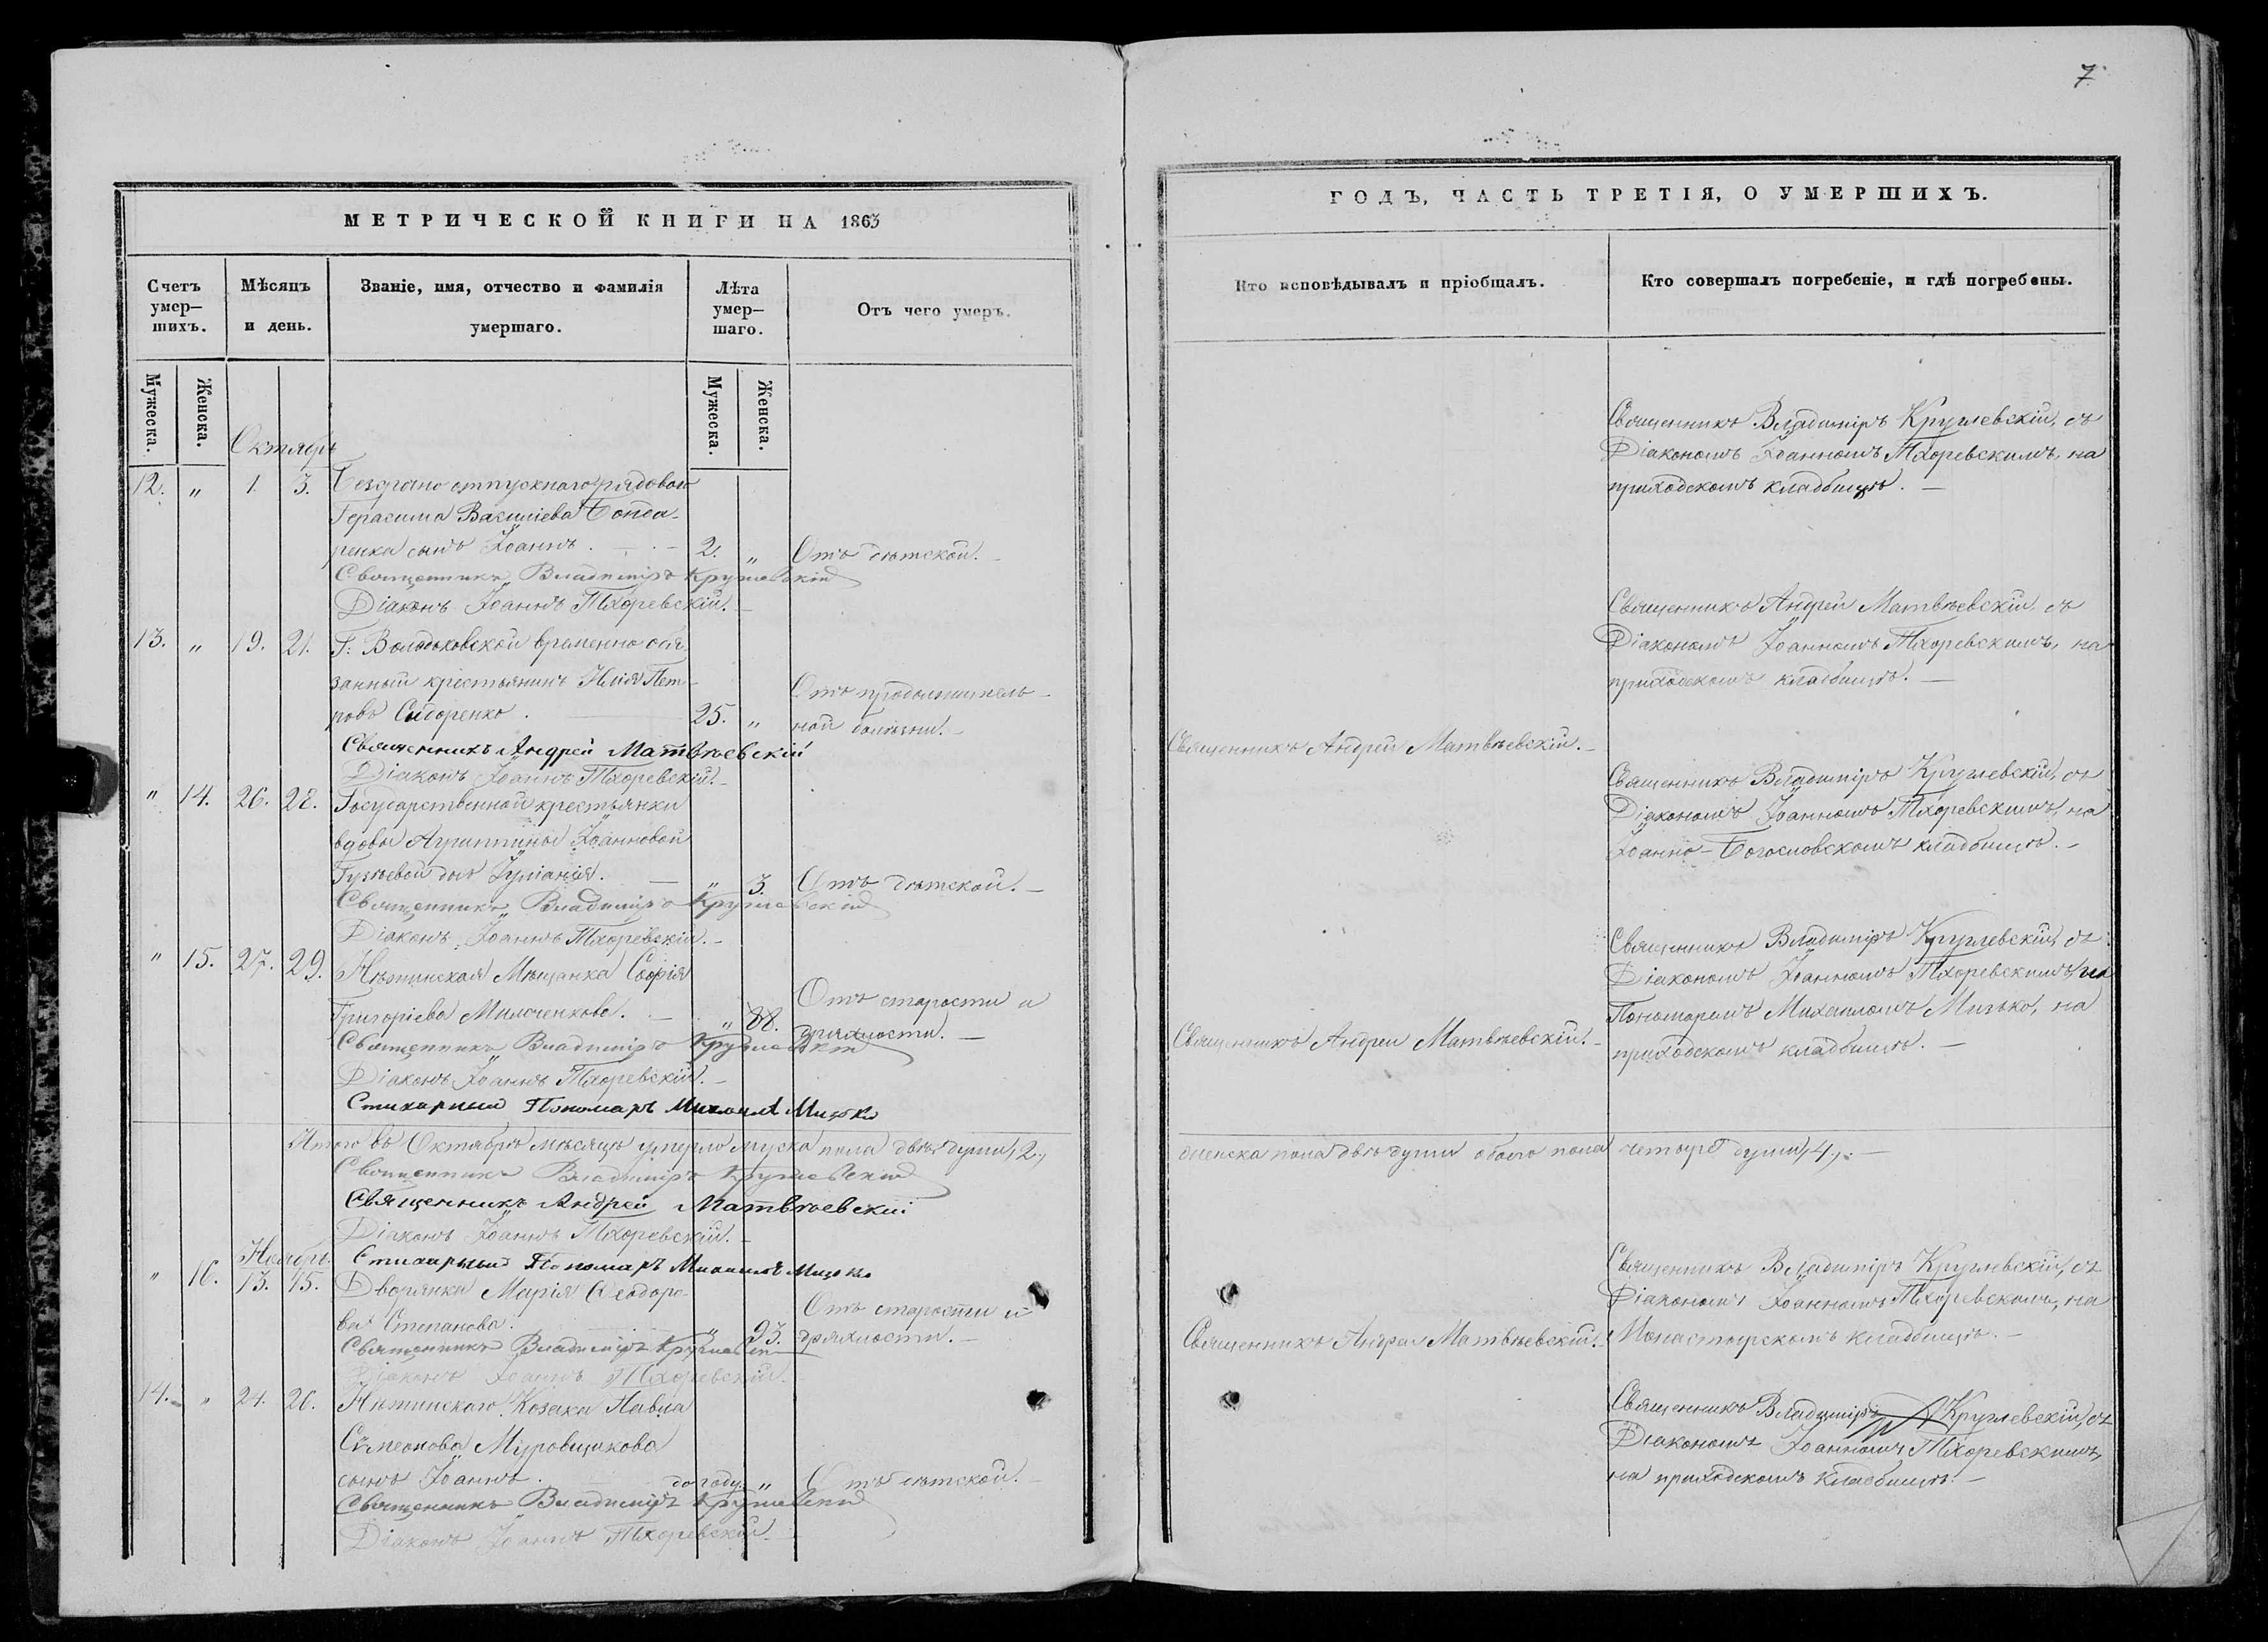 7.
МЕТРИЧЕСКОЙ КНИГИ НА 1863
Счетъ умер-
шихъ.
Мѣсяцъ
и день.
Званіе, имя, отчество и фамилія
умершаго.
Лѣта
умер-
шаго.
Отъ чего умеръ.
Мужеска.
Женска.
Мужеска.
Женска.
Октябрь
12. „ 1. 3. Безсрочно отпускнаго рядоваго
Герасима Василіева Бонда-
ренка сынъ Іоаннъ. 2. „ Отъ дѣтской.
Священникъ Владиміръ Круглевскій
Діаконъ Іоаннъ Тхоревскій.
13. „ 19. 21. Г. временно обя-
занный крестьянинъ Илія Пет-
ровъ Сидоренко. 25. „ Отъ продолжитель-
ной болѣзни.
Священникъ Андрей Матвѣевскій
Діаконъ Іоаннъ Тхоревскій.
„ 14. 26. 28. Государственной крестьянки
вдовы Агриппины Іоанновой
дочь Іуліанія. „ 3. Отъ дѣтской.
Священникъ Владиміръ Круглевскій
Діаконъ Іоаннъ Тхоревскій.
„ 15. 27. 29. Нѣжинская Мѣщанка Софія
Григоріева „ 88. Отъ старости и
дряхлости.
Священникъ Владиміръ Круглевскій
Діаконъ Іоаннъ Тхоревскій.
Стихарный Пономарь Михаилъ Мизько
Итого въ Октябрѣ мѣсяцѣ умерло муска пола двѣ души, 2.,
Священникъ Владиміръ Круглевскій
Священникъ Андрей Матвѣевскій
Діаконъ Іоаннъ Тхоревскій.
Стихарный Пономарь Михаилъ Мизько
Ноябрь.
„ 16. 13. 15. Дворянка Марія Ѳеодоро-
ва Степанова. „ 93. Отъ старости и
дряхлости.
Священникъ Владиміръ Круглевскій
Діаконъ Іоаннъ Тхоревскій.
14. „ 24. 26. Нѣжинскаго Козака Павла
Сѵмеонова Муровщикова
сынъ Іоаннъ. до году. „ Отъ дѣтской.
Священникъ Владиміръ Круглевскій
Діаконъ Іоаннъ Тхоревскій.
ГОДЪ, ЧАСТЬ ТРЕТІЯ, О УМЕРШИХЪ.
Кто исповѣдывалъ и пріобщалъ.
Кто совершалъ погребеніе, и гдѣ погребены.
Священникъ Владиміръ Круглевскій, съ
Діакономъ Іоанномъ Тхоревскимъ, на
приходскомъ кладбищѣ.
Священникъ Андрей Матвѣевскій съ
Діакономъ Іоанномъ Тхоревскимъ, на
приходскомъ кладбищѣ.
Священникъ Андрей Матвѣевскій.
Священникъ Владиміръ Круглевскій, съ
Діакономъ Іоанномъ Тхоревскимъ, на
Іоанно-Богословскомъ кладбищѣ.
Священникъ Владиміръ Круглевскій, съ
Діакономъ Іоанномъ Тхоревскимъ, и
Пономаремъ Михаиломъ Мизько, на
приходскомъ кладбищѣ.
Священникъ Андрей Матвѣевскій.
женска пола двѣ души обоего пола четыре души, 4.,
Священникъ Владиміръ Круглевскій, съ
Діакономъ Іоанномъ Тхоревскимъ, на
Монастырскомъ кладбищѣ.
Священникъ Андрей Матвѣевскій.
Священникъ Владиміръ Круглевскій, съ
Діакономъ Іоанномъ Тхоревскимъ,
на приходскомъ кладбищѣ.